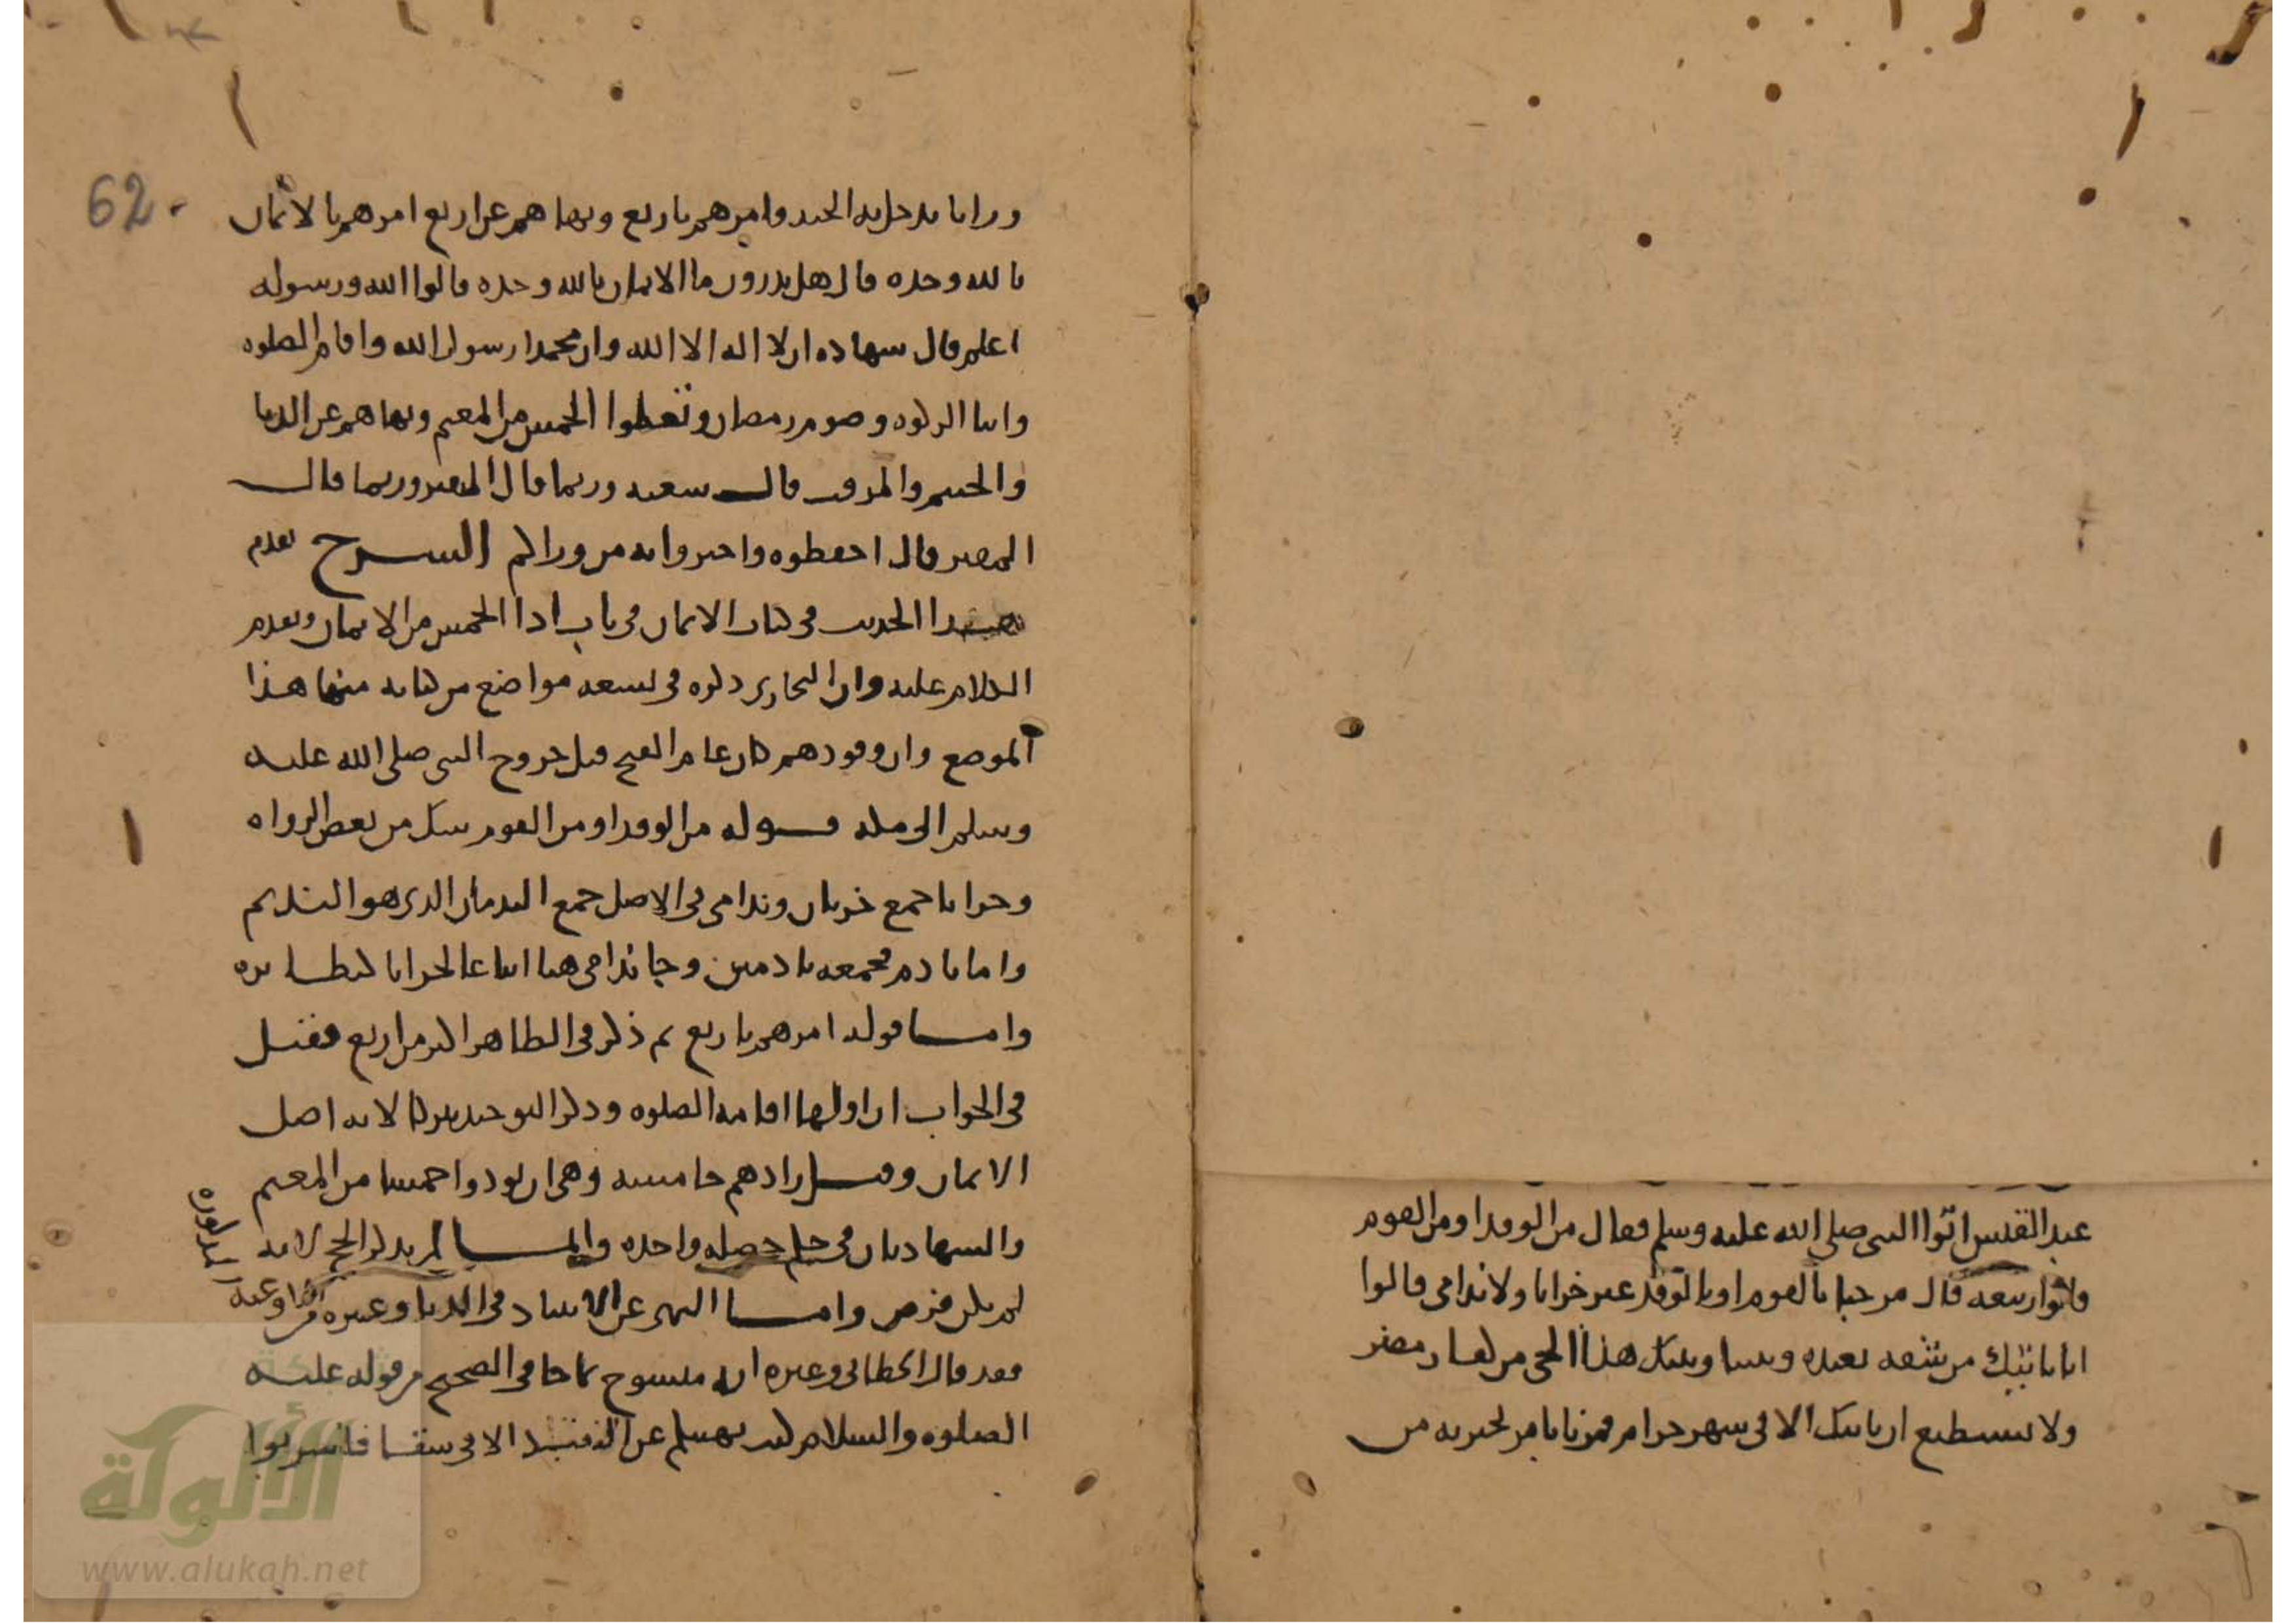 عبد القيس اتوا النبي صلى الله عليه وسلم فقال من الوفد او من القوم
قالوا ربيعه قال مرحبا بالقوم او بالوفد غير خزايا ولا ندامى قالوا
انا ناتيك من شقه بعيده وبيننا وبينك هذا الحي من كفار مضر
ولا نستطيع ان ناتيك الا في شهر حرام فمرنا بامر نخبر به من
62
ورانا ندخل به الجنه وامرهم باربع ونهاهم عن اربع امرهم بالايمان
بالله وحده قال هل تدرون ما الايمان بالله وحده قالوا الله ورسوله
اعلم قال شهاده ان لا اله الا الله وان محمدا رسول الله واقام الصلوه
وايتا الزكوه وصوم رمضان وتعطوا الخمس من المغنم ونهاهم عن الدبا
والحنتم والمزفت قال شعبه وربما قال النقير وربما قال
المقير قال احفظوه واخبروا به من وراكم الشرح تقدم
هذا الحديث في كتاب الايمان في باب ادا الخمس من الايمان وتقدم
الكلام عليه وان البخاري ذكره في تسعه مواضع من كتابه منها هذا
الموضع وان وفودهم كان عام الفتح قبل خروج النبي صلى الله عليه
وسلم الى مكه قوله من الوفد او من القوم شك من بعض الرواه
وخزايا جمع خزيان وندامى في الاصل جمع الندمان الذي هو النديم
واما نادم فجمعه نادمين وجا ندامى هنا اتباعا لخزايا كنظايره
واما قوله امرهم باربع ثم ذكر في الظاهر اكثر من اربع فقيل
في الجواب ان اولها اقامه الصلوه وذكر التوحيد تبركا لانه اصل
الايمان وقيل زادهم خامسه وهي ان يودوا خمسا من المغنم
والشهادتان في حكم خصله واحده وانما لم يذكر الحج لانه
لم يكن فرض واما النهي عن الانتباذ في الدبا وغيره من
الاوعيه المذكوره
فقد قال الخطابي وغيره انه منسوخ بما جا في الصحيح من قوله عليه
الصلوه والسلام كنت نهيتكم عن النبيذ الا في سقا فاشربوا
الألوكة
www.alukah.net